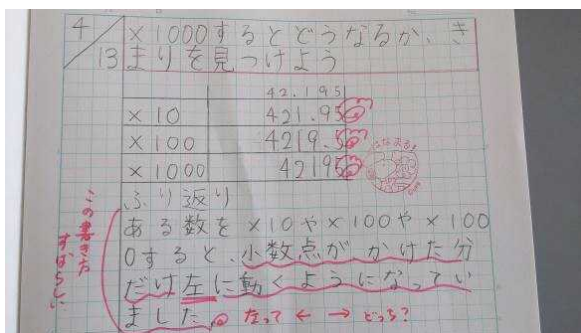 4/13
×1000するとどうなるか、き
まりを見つけよう
42.195
×10 421.95
×100 4219.5
×1000 42195
はなまる!
ふり返り
ある数を×10や×100や×100
0すると、小数点がかけた分
だけ左に動くようになってい
ました。
左って ← → どっち?